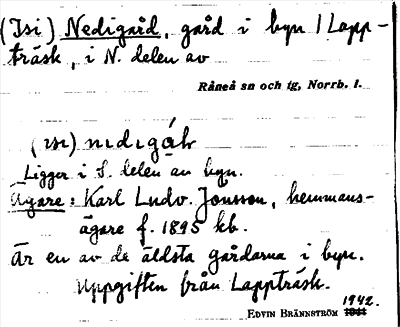 (Isi) Nedigård, gård i byn Lapp-
träsk, i N. delen av
Råneå sn och tg, Norrb. l.
(ısı) nedigáḷv
Ligger i S. delen av byn.
Ägare: Karl Ludv. Jonsson, hemmans-
ägare f. 1895 kb.
Är en av de äldsta gårdarna i byn.
Uppgiften från Lappträsk.
1942.
EDVIN BRÄNNSTRÖM 1941